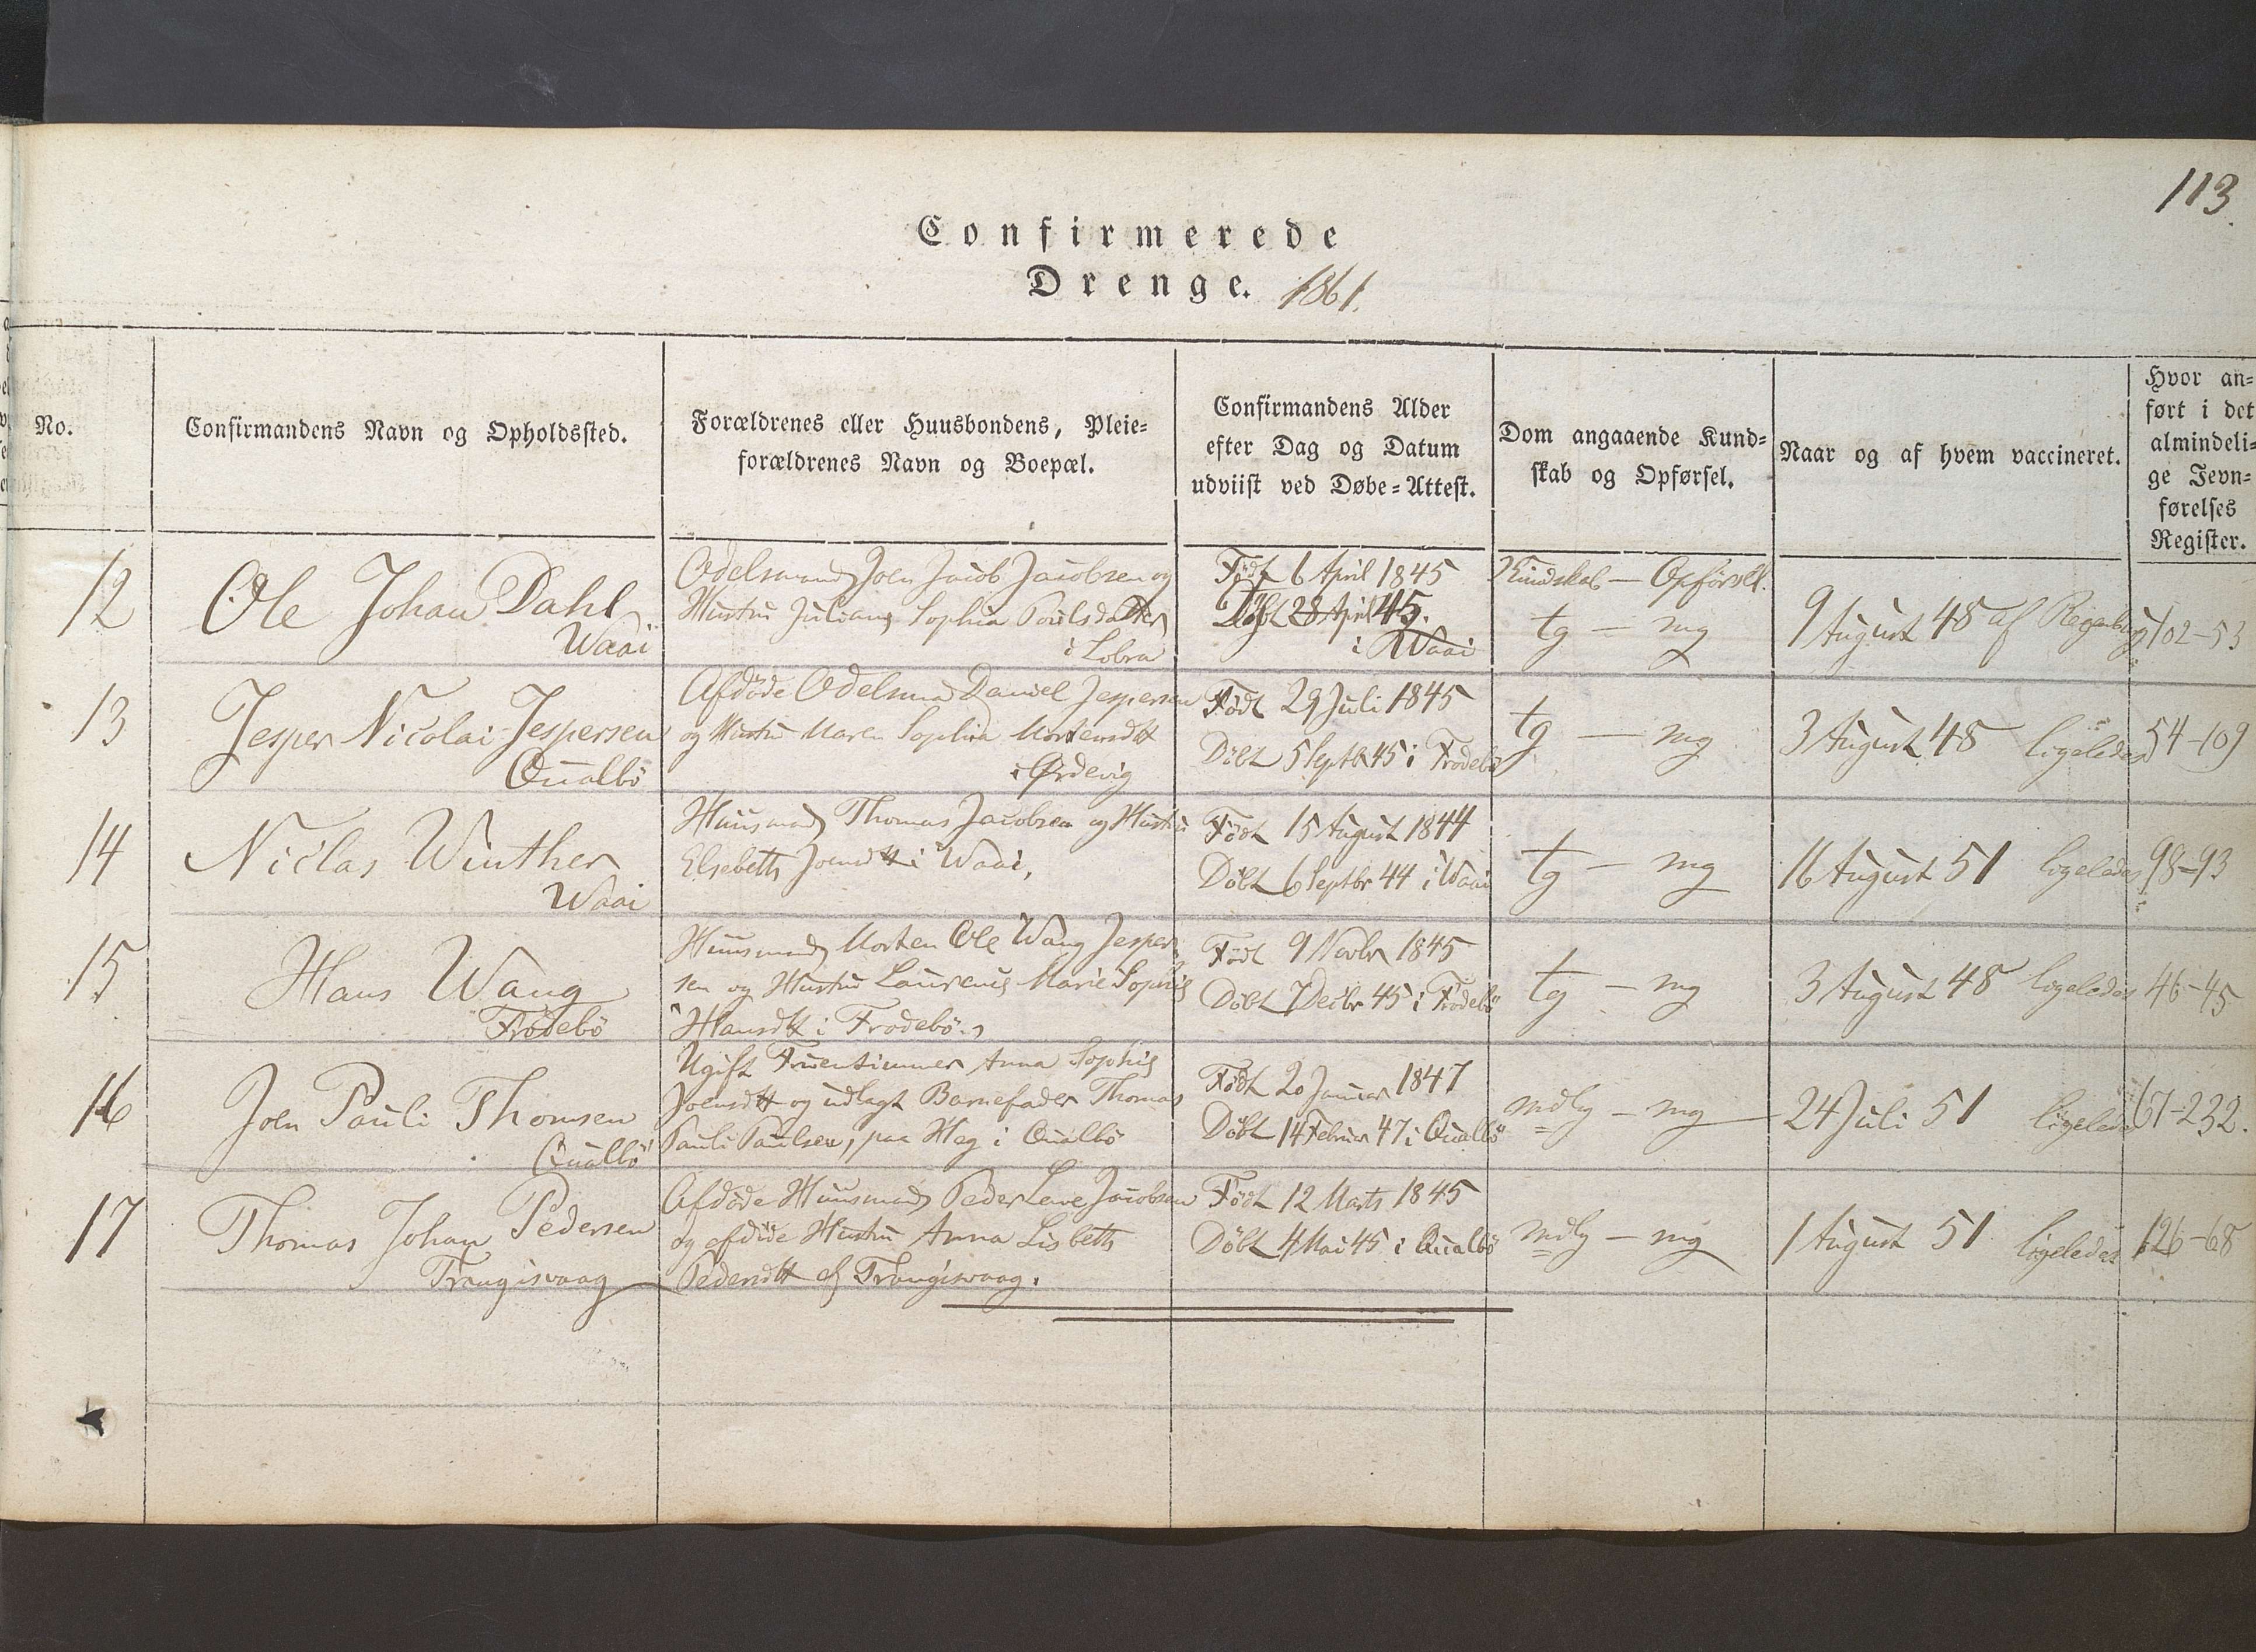 113.
Confirmerede
Drenge. 1861.
No.
Confirmandens Navn og Opholdssted.
Forældrenes eller Huusbondens, Pleie-
forældrenes Navn og Boepæl.
Confirmandens Alder
efter Dag og Datum
udviist ved Døbe-Attest.
Dom angaaende Kund-
skab og Opførsel.
Naar og af hvem vaccineret.
Hvor an-
ført i det
almindeli-
ge Jevn-
førelses
Register.
12
Ole Johan Dahl
Waai
Odelsmand Joen Jacob Jacobsen og
Hustru Juliane Sophia Poulsdatter
i Lobra
Født 6 April 1845
Døbt 28 April 45.
i Waai
Kundskab — Opførsel.
tg — mg
9 August 48 af Regenburg
102-53
13
Jesper Nicolai Jespersen
Qualbö
Afdöde Odelsmd Daniel Jespersen
og Hustru Maren Sophia Mortensdtt
i Ørdevig
Född 29 Juli 1845
Döbt 5 Septbr 45 i Frodebö
tg — mg
3 August 48 ligeledes
54-109
14
Niclas Winther
Waai
Huusmand Thomas Jacobsen og Hustru
Elsebeth Joensdtt i Waai,
Födt 15 August 1844
Döbt 6 Septbr 44 i Waai
tg — mg
16 August 51 ligeledes
98-93
15
Hans Wang
Frodebö
Huusmand Morten Ole Wang Jesper-
sen og Hustru Laurense Marie Sophie
Hansdtt i Frodebö.
Födt 9 Novbr 1845
Döbt 7 Decbr 45 i Frodebö
tg — mg
3 August 48 ligeledes
46-45
16
Joen Pauli Thomsen
Qualbö
Ugift Fruentimmer Anna Sophie
Joensdtt og udlagt Barnefader Thomas
Pauli Paulsen, paa Heg i Qualbö
Födt 20 Januar 1847
Döbt 14 Februar 47 i Qualbö
mdlg — mg
24 Juli 51 ligeledes
67-232.
17
Thomas Johan Pedersen
Trangisvaag
Afdöde Huusmand Peder Lene Jacobsen
og afdöde Hustru Anna Lisbeth
Pedersdtt af Trangisvaag.
Födt 12 Marts 1845
Döbt 4 Mai 45 i Qualbö
mdlg — mg
1 August 51 ligeledes
126-68